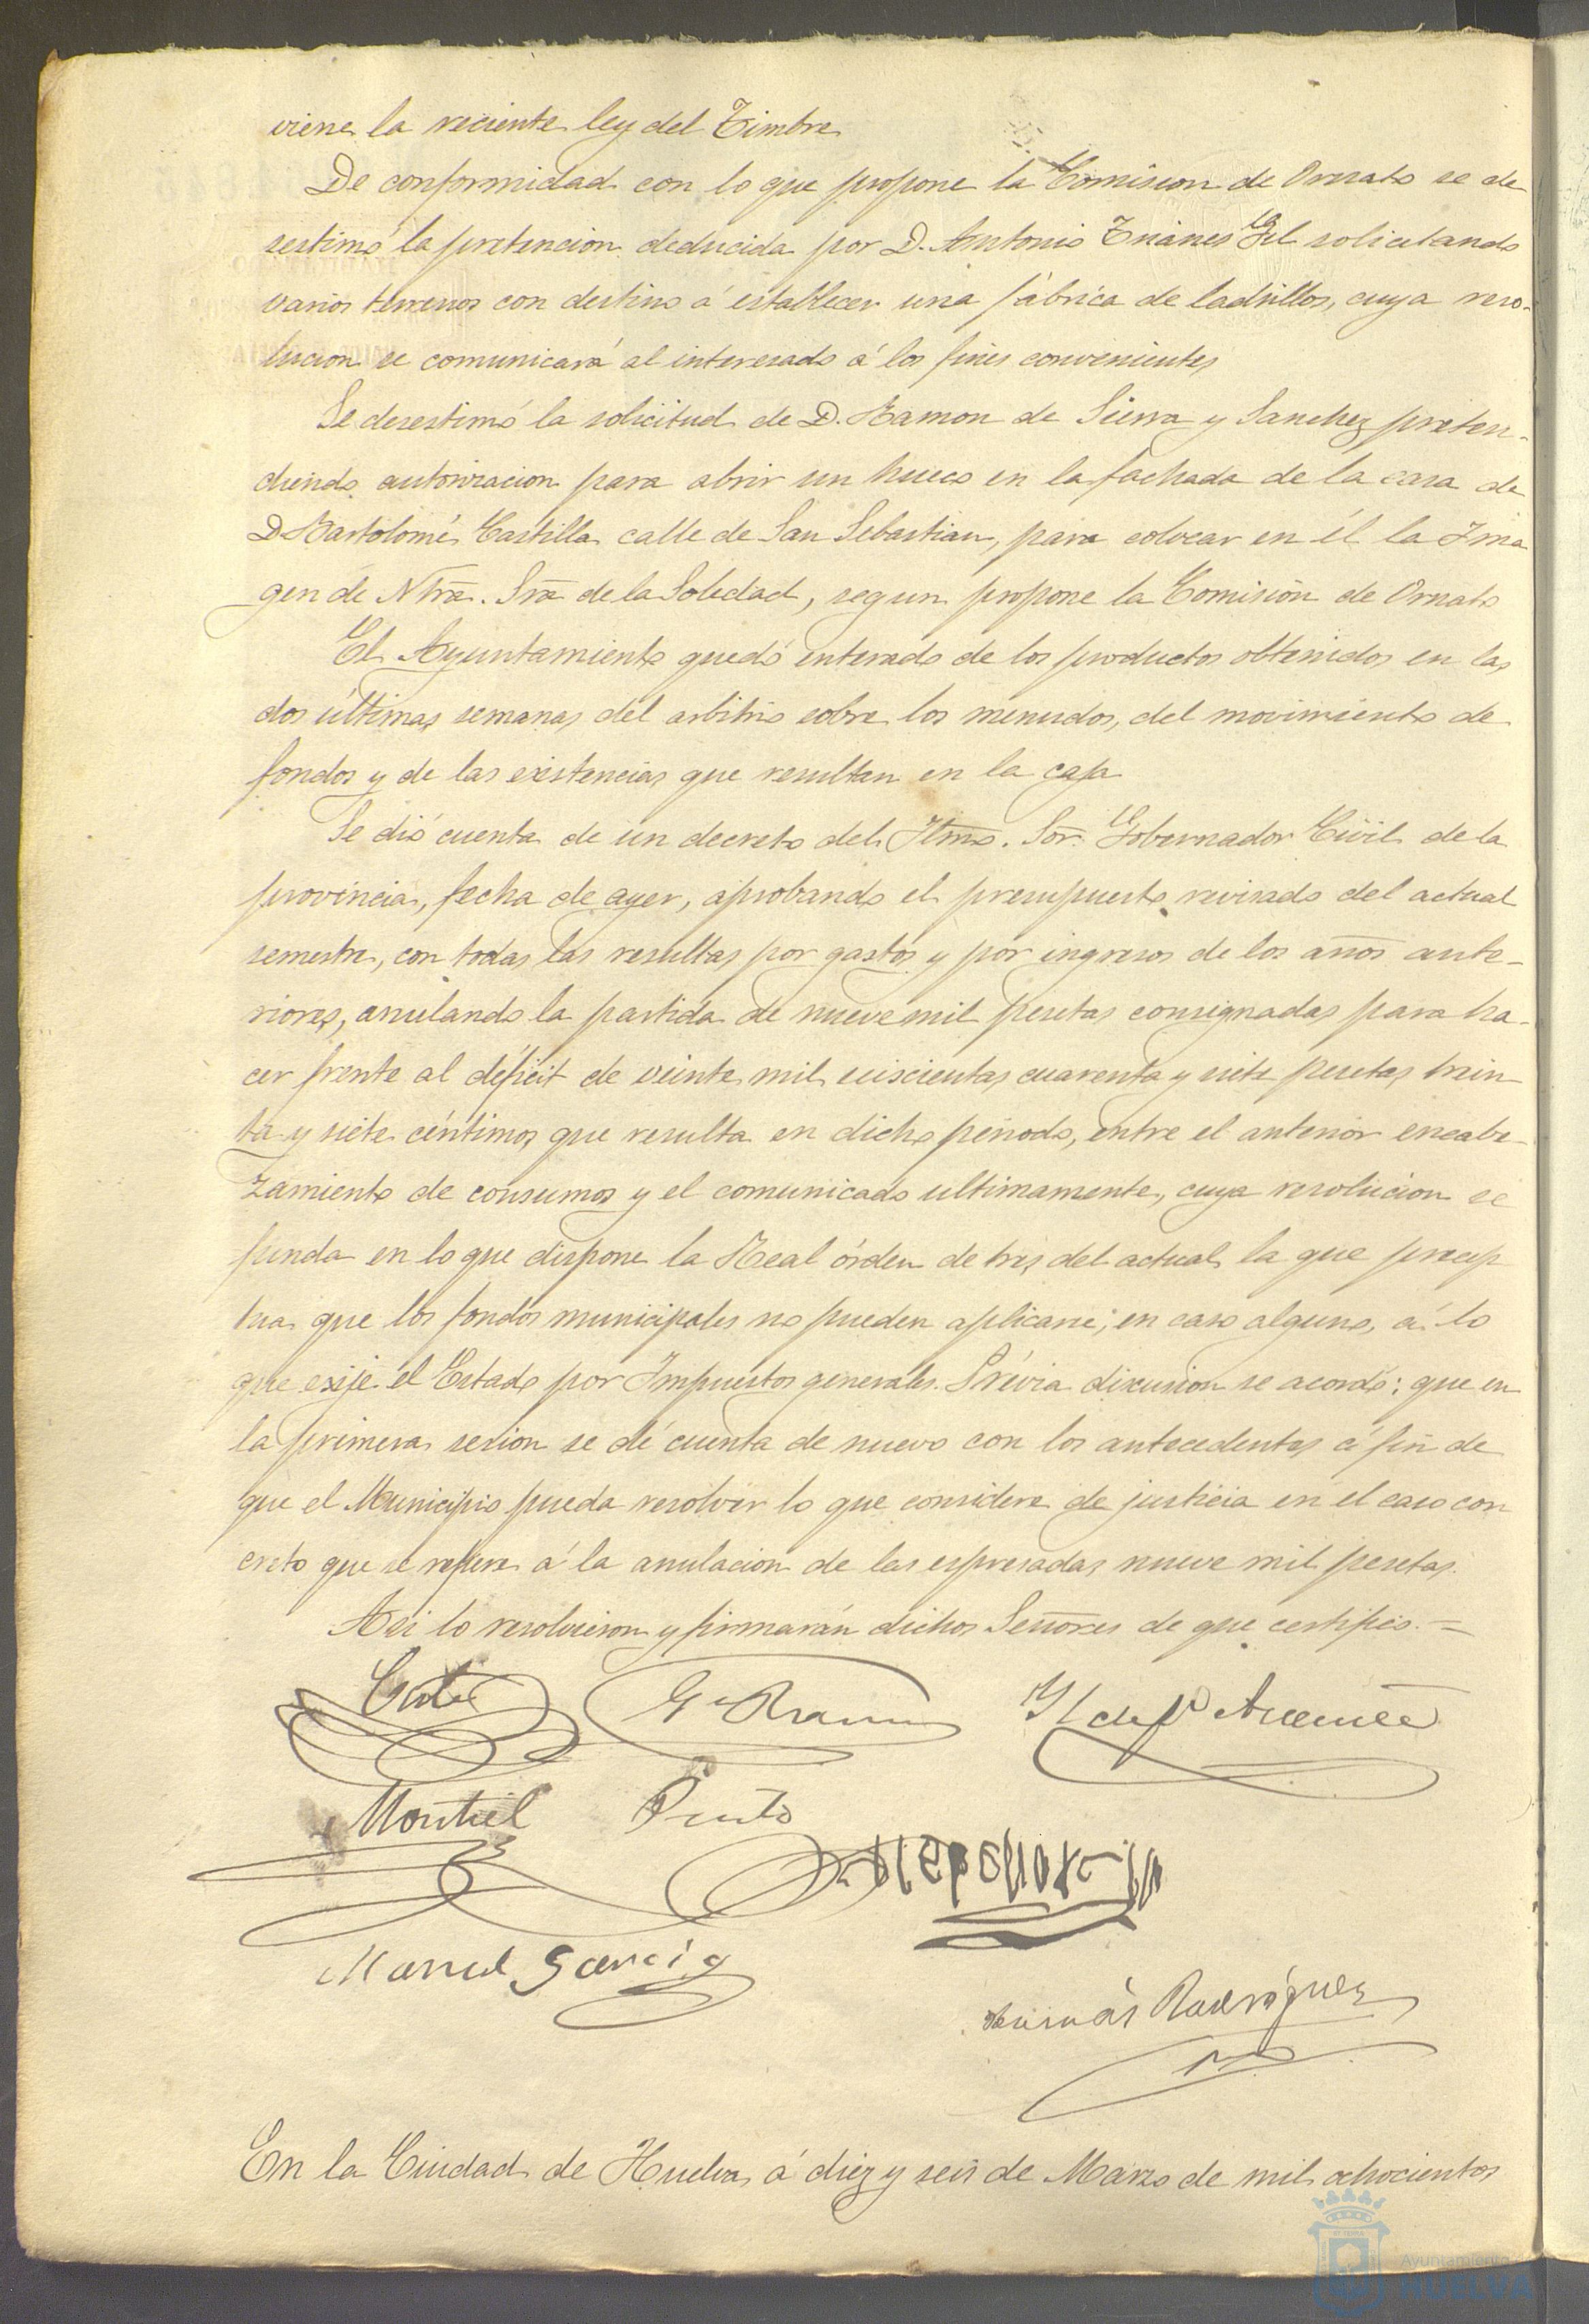 viene la reciente ley del Timbre
De conformidad con lo que propone la Comision de Ornato se de
sestimó la pretencion deducida por D. Antonio Gil solicitando
varios terrenos con destino á establecer una fábrica de ladrillos, cuya reso-
lucion se comunicará al interesado á los fines convenientes
Se desestimó la solicitud de D. Ramon de Sierra y Sanchez, preten-
diendo autorizacion para abrir un hueco en la fachada de la casa de
D Bartolomé Castilla calle de San Sebastian, para colocar en él la Ima
gen de Ntra. Sra de la Soledad, segun propone la Comisión de Ornato
El Ayuntamiento quedó enterado de los productos obtenidos en las
dos últimas semanas del arbitrio sobre los menudos, del movimiento de
fondos y de las existencias que resultan en la caja
Se dió cuenta de un decreto del Iltmo. Sor. Gobernador Civil de la
provincia, fecha de ayer, aprobando el presupuesto revisado del actual
semestre, con todas las resultas por gastos y por ingresos de los años ante-
riores, anulando la partida de nueve mil pesetas consignadas para ha-
cer frente al déficit de veinte mil seiscientas cuarenta y siete pesetas trein
ta y siete céntimos que resulta en dicho periodo, entre el anterior encabe-
zamiento de consumos y el comunicado ultimamente, cuya resolucion se
funda en lo que dispone la Real órden de tres del actual la que precep
tua que los fondos municipales no pueden aplicarse, en caso alguno, á lo
que exije el Estado por Impuestos generales. Prévia discusion se acordó: que en
la primera sesion se dé cuenta de nuevo con los antecedentes á fin de
que el Municipio pueda resolver lo que considere de justicia en el caso con
creto que se refiere á la anulacion de las espresadas nueve mil pesetas.
Asi lo resolvieron y firmarán dichos Señores de que certifico.=
Montiel Pinto
Manuel Garcia
Rodriguez
En la Ciudad de Huelva á diez y seis de Marzo de mil ochocientos
Ayuntamiento
HUELVA